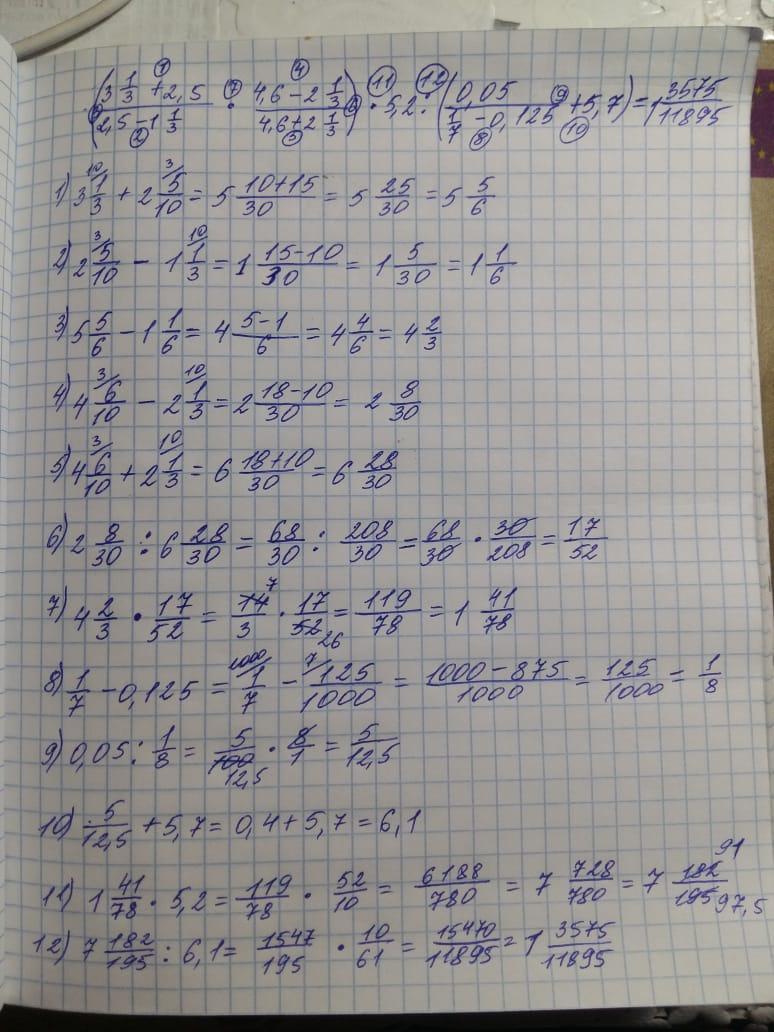 ((3 1/3 + 2,5)/(2,5 - 1 1/3) · (4,6 - 2 1/3)/(4,6 + 2 1/3)) · 5,2 : (0,05/(1/7 - 0,125) + 5,7) = 1 3575/11895
1) 3 1/3 + 2 5/10 = 5 (10+15)/30 = 5 25/30 = 5 5/6
2) 2 5/10 - 1 1/3 = 1 (15-10)/30 = 1 5/30 = 1 1/6
3) 5 5/6 - 1 1/6 = 4 (5-1)/6 = 4 4/6 = 4 2/3
4) 4 6/10 - 2 1/3 = 2 (18-10)/30 = 2 8/30
5) 4 6/10 + 2 1/3 = 6 (18+10)/30 = 6 28/30
6) 2 8/30 : 6 28/30 = 68/30 : 208/30 = 68/30 · 30/208 = 17/52
7) 4 2/3 · 17/52 = 14/3 · 17/52 = 119/78 = 1 41/78
8) 1/7 - 0,125 = 1/7 - 125/1000 = (1000-875)/1000 = 125/1000 = 1/8
9) 0,05 : 1/8 = 5/100 · 8/1 = 5/12,5
10) 5/12,5 + 5,7 = 0,4 + 5,7 = 6,1
11) 1 41/78 · 5,2 = 119/78 · 52/10 = 6188/780 = 7 728/780 = 7 182/195 91 97,5
12) 7 182/195 : 6,1 = 1547/195 · 10/61 = 15470/11895 = 1 3575/11895